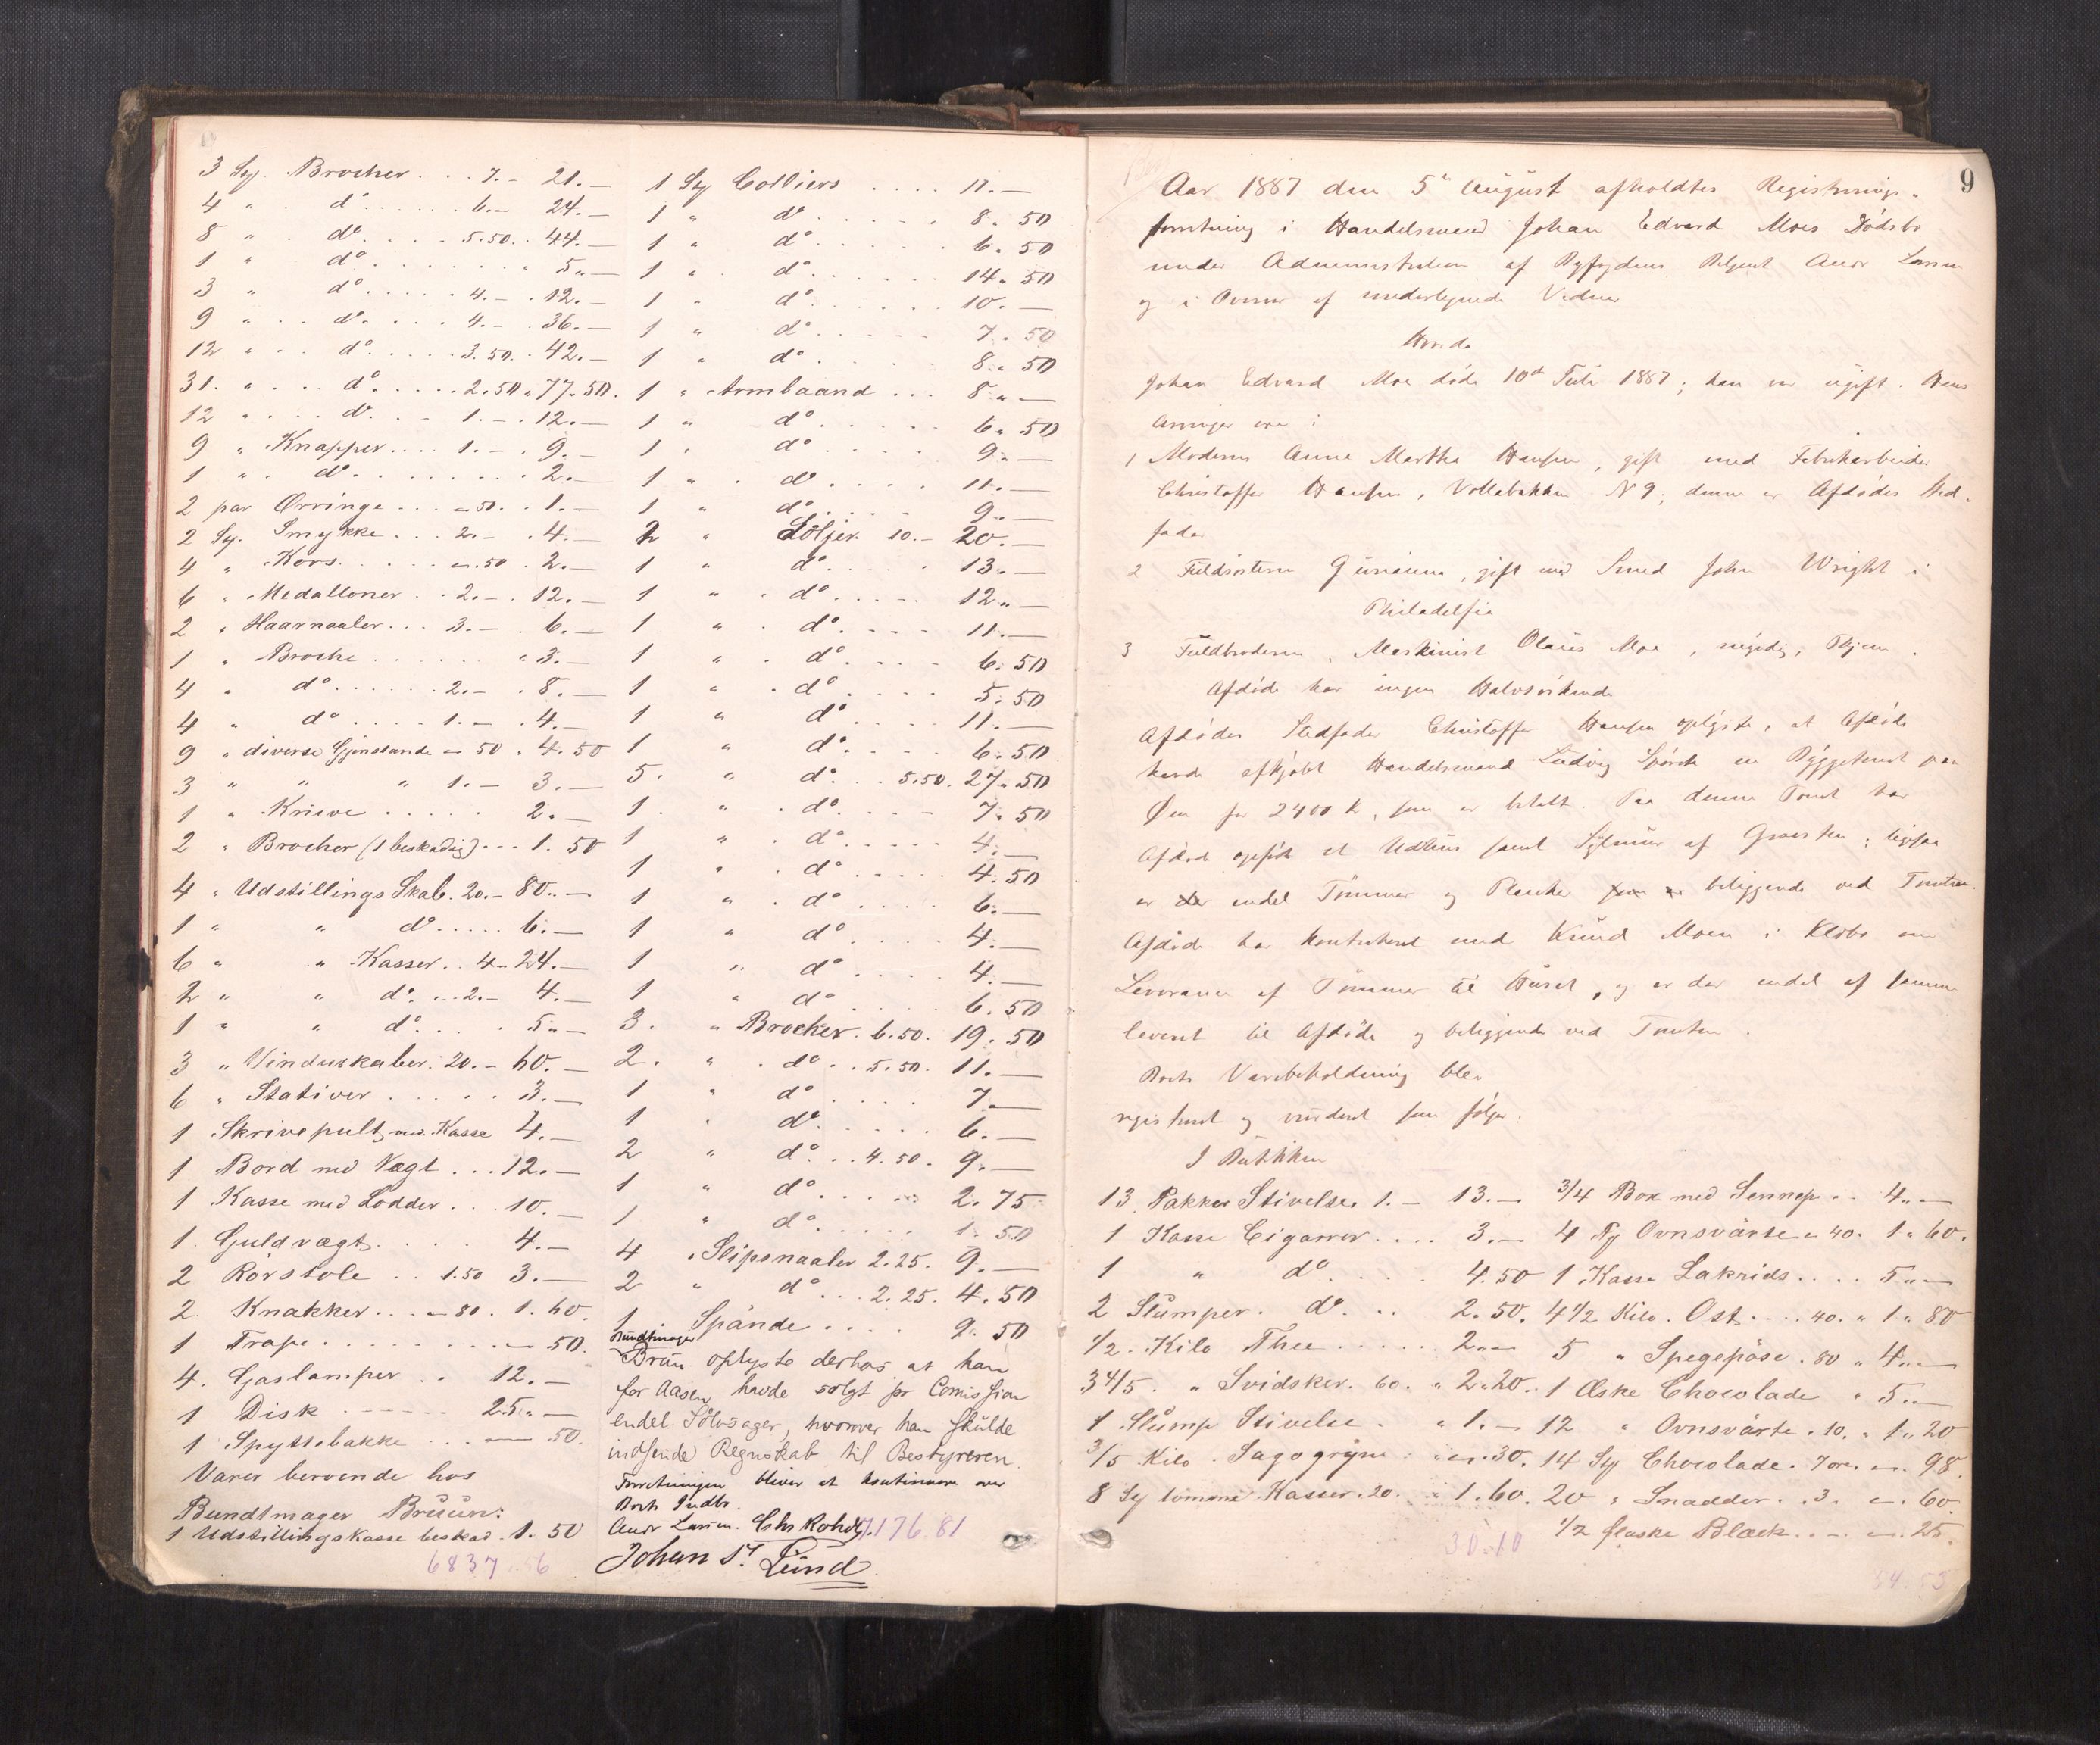 3 Sty. Brocher . . . 7.– 21.–
4 " . do . . . . . 6.– 24.–
8 " . do . . . . 5.50. 44.–
1 " do . . . . . . . 5.–
3 " do . . . . 4.– 12.–
9 " . . do . . . . 4.– 36.–
12 " . . do . . . . 3.50. 42.–
31. " . . do . . . . 2.50 " 77.50.
12 " . . do . . . 1.– . 12.–
9 " Knapper . . . . 1.– . 9.–
1 " . do . . . . . . . . 2.–
2 par Örringe . . . – 50. . 1.–
2 Sty. Smykke . . . 2.– . 4.–
4 " Kors . . . . . – .50 . 2.–
6 " Medalloner . . 2.– . 12.–
2 " Haarnaaler . . . 3.– . 6.–
1 " Broche . . . . . . . " 3.–
4 " do . . . . . . 2.– . 8.–
4 " do . . . . 1.– . 4.–
9 " diverse Gjenstande – 50 . 4.50
3 " " " 1.– 3.–
1 " Knive . . . . . 2.–
2 " Brocher (1 beskadig) . . . 1.50
4 " Udstillings Skab. 20.– 80.–
1 " " do . . . . . 6.–
6 " " Kasser . . 4.– 24.–
2 " " do . . . 2.– 4.–
1 " " do . . . . 5.–
3 " Vinduskaber. 20.– 60.–
6 " Stativer . . . . . 3.–
1 Skrivepult med Kasse 4.–
1 Bord med Vægt . . . 12.–
1 Kasse med Lodder . . . 10.–
1. Guldvægt . . . . 4.–
2 Rorstole . . 1.50 3.–
2. Knakker . . . – 80. 1.60.
1 Trape . . . . . . . . – 50.
4. Gaslamper . . 12.–
1 Disk . . . . . 25.–
1 Spyttebakke . . . – 50.
Varer beroende hos
Bundtmager Bruun:
1 Udstillingskasse beskad. 1.50
6837.56
1 Sty Colliers . . . . 11.–
1 " do . . . . . . 8.50
1 " do . . . . . . 6.50
1 " do . . . . . . 14.50
1 " do . . . . . . 10.–
1 " do . . . . . . 7.50
1 " do . . . . . . 8.50
1 " Armbaand . . . 8.–
1 " do . . . . . 6.50
1 " do . . . . . 9.–
1 " do . . . . . 11.–
1 " do . . . . . 9.–
2 " Söljer. 10.– 20.–
1 " do . . . . . 13.–
1 " do . . . . . 12.–
1 " do . . . . 11.–
1 " do . . . . 6.50
1 " do . . . . 5.50
1 " do . . . . 11.–
1 " do . . . . 6.50
5. " do . . . 5.50. 27.50
1. " do . . . . 7.50
1 " do . . . . . 4.–
1 " do . . . . . 4.50
1 " do . . . . 6.–
1 " do . . . . 4.–
1 " do . . . . 4.–
1 " do . . . . . 6.50
3. " Brocher. 6.50. 19.50
2. " do . . 5.50. 11.–
1 " do . . . . . 7.–
1 " do . . . . . 6.–
2 " do . . . 4.50. 9.–
1 " do . . . . 2.75
1 " do . . . . . 1.50
4 " Slipsnaaler 2.25. 9.–
2 " do . . . 2.25. 4.50
1 Spände . . . . 9.50
Bundtmager
Bruun oplyste derhos at han
for Aasen havde solgt pr Comission
endel Sölvsager, hvorover han skulde
indsende Regnskab til Bestyreren.
Forretningen bliver at kontinuere over
Boets Indbo.
Andr Larsen. Chr Rohde. 7176.81
Johan St. Lund
9
Aar 1887 den 5te August afholdtes Registrerings-
forretning i Handelsmand Johan Edvard Moes Dödsbo
under Administration af Byfogdens Betjent Andr Larsen
og i Overvær af undertegnede Vidner
Hvorda
Johan Edvard Moe döde 10de Juli 1887; han var ugift. Hans
Arvinger ere:
1 Moderen Anne Martha Hansen, gift med Fabrikarbeider
Christoffer Hansen, Vollabakken N 9; denne er Afdödes Sted-
fader
2 Fuldsösteren Gurianna, gift med Smed John Wright i
Philadelfia
3 Fuldbroderen, Maskinist Olaus Moe, myndig, Thjem.
Afdöde har ingen Halvsöskende
Afdödes Stedfader Christoffer Hansen oplyste, at Afdöde
havde afkjöbt Handelsmand Ludvig Spörck en Byggetomt paa
Öen for 2400 k, som er betalt. Paa denne Tomt har
Afdöde opfört et Udhus samt Sylmur af Graasten; ligesaa
er der endel Tömmer og Planker beliggende ved Tomten.
Afdöde har kontraheret med Knud Moen i Klæbo om
Leverance af Tömmer til Huset, og er der endel af samme
leveret til Afdöde og beliggende ved Tomten.
Boets Varebeholdning blev
registreret og vurderet som fölger:
I Butikken
13 Pakker Stivelse. 1.– 13.–
1 Kasse Cigarrer . . . . 3.–
1 " do . . . . 4.50
2 Slumper. do . . 2.50.
1/2. Kilo Thee . . . . . 2.–
3 4/5. " Svidsker. 60. " 2.20.
1 Slump Stivelse . " 1.–
3/5 Kilo Sagogryn . – .30.
8 Sty tomme Kasser. 20. 1.60.
30.10
3/4 Box med Sennep . . 4.–
4 Ty Ovnsvärte – 40. 1.60.
1 Kasse Lakrids . . . . 5.–
4 1/2 Kilo. Ost . . . . 40. " 1.80
5 " Spegepöse. 80 " 4.–
1 Æske Chocolade " 5.–
12 " Ovnsvärte. 10. " 1.20
14 Sty Chocolade. 7 öre. – . 98.
20 " Snadder. . 3. – . 60
1/2 flaske Blæk . . – . – . 25.
54.53